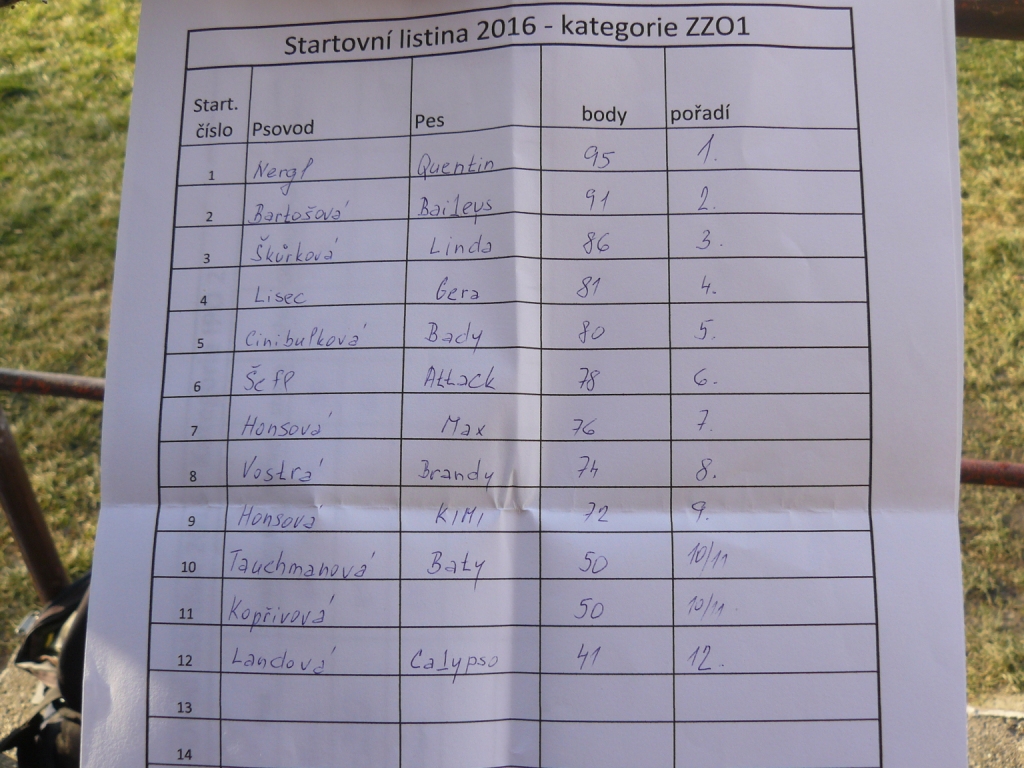 Startovní listina 2016 - kategorie ZZO1
Start. číslo Psovod Pes body pořadí
1 Nergl Quentin 95 1.
2 Bartošová Baileys 91 2.
3 Škůrková Linda 86 3.
4 Lisec Gera 81 4.
5 Cinibulková Bady 80 5.
6 Šefl Attack 78 6.
7 Honsová Max 76 7.
8 Vostrá Brandy 74 8.
9 Honsová KIMI 72 9.
10 Tauchmanová Baty 50 10/11
11 Kopřivová 50 10/11.
12 Landová Calypso 41 12.
13
14